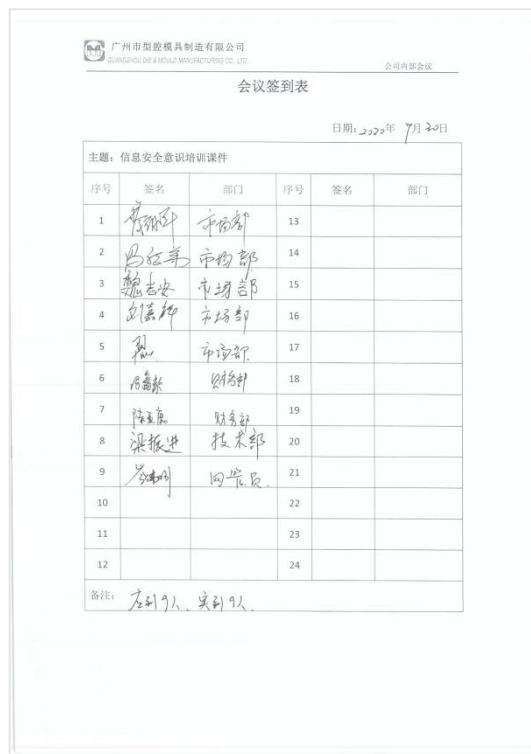 广州市型腔模具制造有限公司
GUANGZHOU DIE & MOULD MANUFACTURING CO., LTD
公司内部会议
会议签到表
日期:2022年 9月20日
主题:信息安全意识培训课件
序号 签名 部门 序号 签名 部门
1 市场部 13
2 冯红英 市场部 14
3 魏志安 市场部 15
4 刘嘉辉 市场部 16
5 市场部 17
6 财务部 18
7 陈亚惠 财务部 19
8 梁振进 技术部 20
9 网管员 21
10 22
11 23
12 24
备注:应到9人、实到9人.